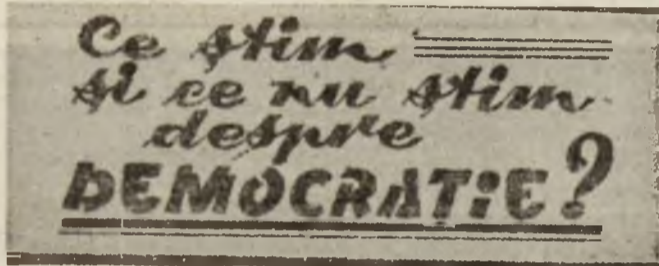 Ce știm
și ce nu știm
despre
DEMOCRAȚiE?